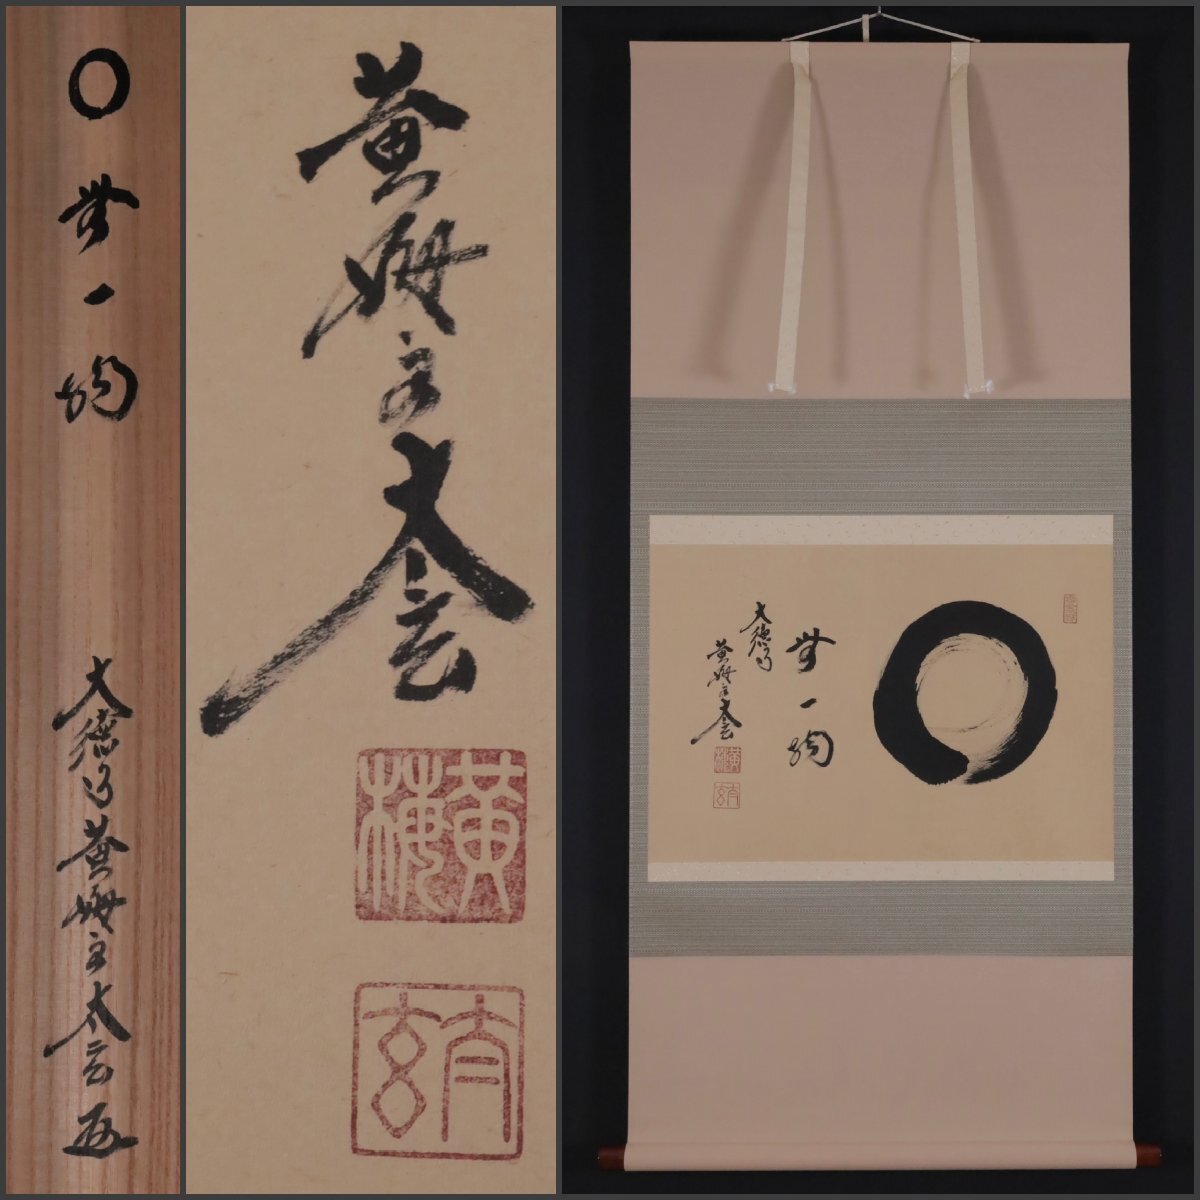 〇
無一物
大徳寺 黄梅主 太玄
黄梅主太玄
黄梅
太玄
〇
無一物
大徳寺
黄梅主太玄
黄梅
太玄